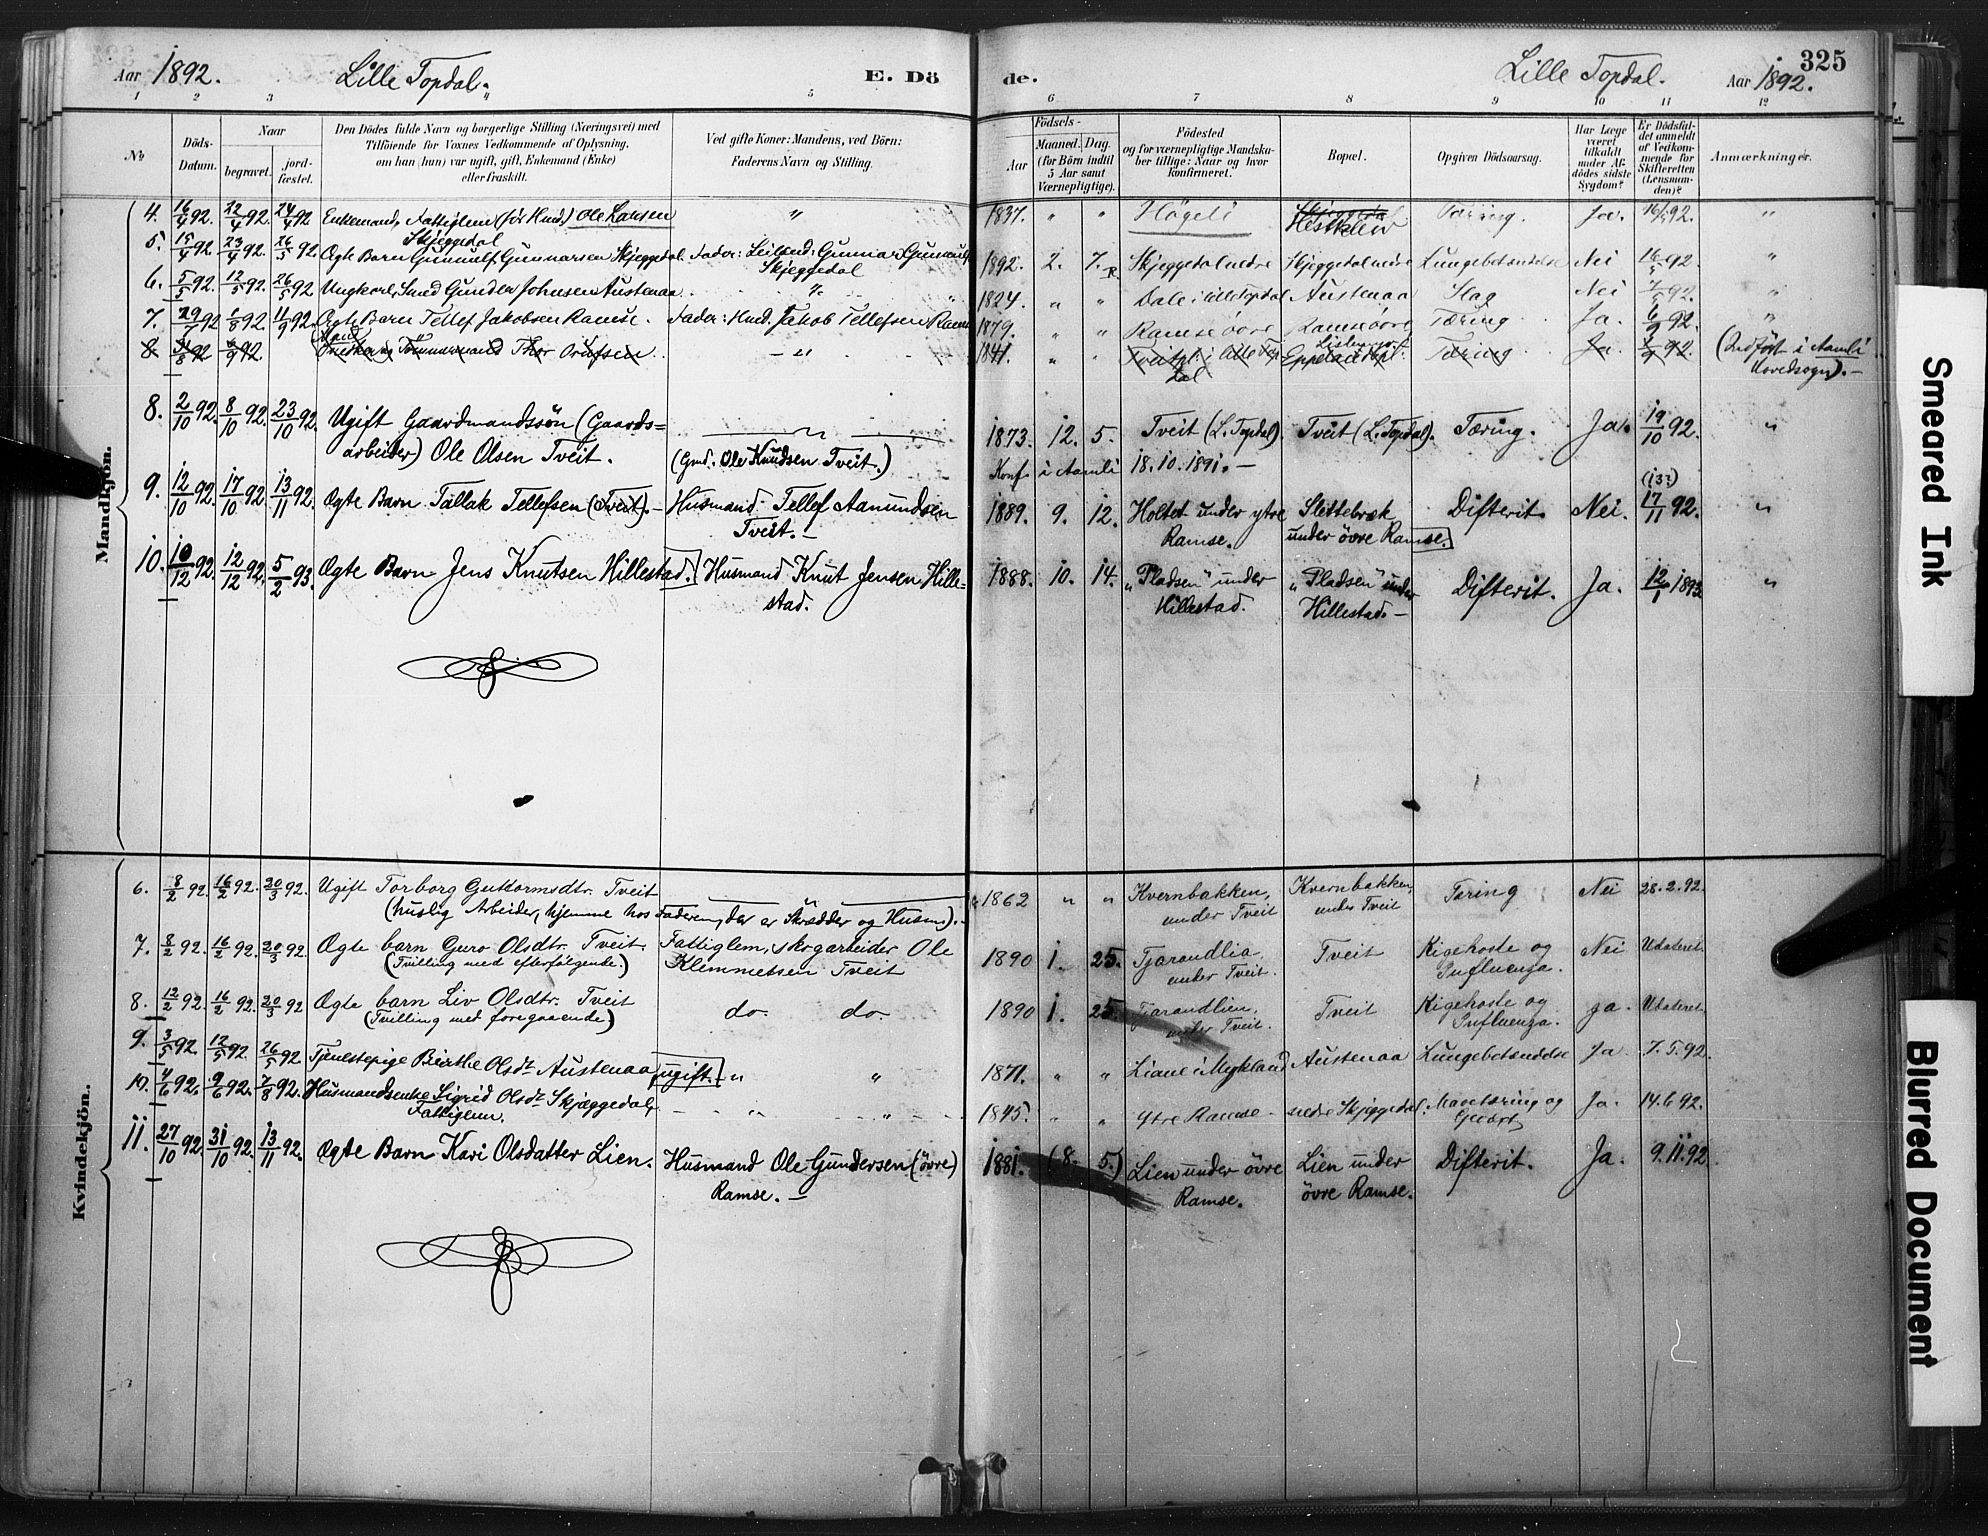 Aar 1892. Lille Topdal. E. Dö
de. Lille Topdal. Aar 1892. 325
1 2 3 5
6 7 8 9 10 11 12
No
Döds-Datum.
Naar
begravet. jord-fæstet.
Den Dödes fulde Navn og borgerlige Stilling (Næringsvei) med
Tilföiende for Voxnes Vedkommende af Oplysning,
om han (hun) var ugift, gift, Enkemand (Enke)
eller fraskilt.
Ved gifte Koner: Mandens, ved Börn:
Faderens Navn og Stilling.
Födsels-
Aar Maaned. Dag.
(for Börn indtil
5 Aar samt
Værnepligtige).
Födested
og for værnepligtige Mandska-
ber tillige: Naar og hvor
konfirmeret.
Bopæl.
Opgiven Dödsaarsag.
Har Læge
været
tilkaldt
under Af-
dödes sidste
Sygdom?
Er Dödsfal-
det anmeldt
af Vedkom-
mende for
Skifteretten
(Lensman-
den)?
Anmærkninger.
Mandkjön.
4. 16/4 92. 22/4 92. 24/4 92 Enkemand, Fattiglem (för Husm.) Ole Larsen " 1837. " " Högeli Skjeggedal Tæring. Ja. 16/5 92. "
Skjeggedal Hestklev
5. 15/4 92 23/4 92. 26/5 92. Ægte Barn Gunnulf Gunnarsen Skjeggedal. Fader: Leilænd: Gunnar Gunnulfs. 1892. 2. 7. Skjeggedal nedre Skjeggedal nedre Lungebetændelse Nei 16/5 92. "
Skjeggedal
6. 5/5 92. 12/5 92. 26/5 92 Ungkarl, Smed Gunder Johnsen Austenaa " 1824. " " Dale i Lille Topdal Austenaa Slag Nei 7/5 92. "
7. 29/7 92 1/8 92. 11/9 92. Ægte Barn Tellef Jakobsen Ramse. Fader: Husm. Jakob Tellefsen Ramse 1879. " " Ramse övre Ramse övre Tæring. Ja. 6/9 92. "
8. 31/8 92 6/9 92. Tömmermand Thor - " - 1841. " " Tveit i Lille Top- Tæring Ja. 92. (Indfört i Aamli
dal Hovedsogn). -
8. 2/10 92. 8/10 92. 23/10 92. Ugift Gaardmandssön (Gaards- 1873. 12. 5. Tveit (L. Topdal). Tveit (L. Topdal). Tæring. Ja. 19/10 92. "
arbeider) Ole Olsen Tveit. (Gmd. Ole Knudsen Tveit.) Konf. i Aamli 18. 10. 1891. -
(13?)
9. 12/10 92. 17/10 92. 13/11 92. Ægte Barn Tallak Tellefsen (Tveit). - Husmand Tellef Aanundsen 1889. 9. 12. Holtet under ytre Slettebræk Difterit. Nei. 17/11 92. "
Tveit. - Ramse. under övre Ramse.
10. 10/12 92. 12/12 92. 5/2 93. Ægte Barn Jens Knutsen Hillestad. Husmand Knut Jensen Hille- 1888. 10. 14. "Pladsen" under "Pladsen" under Difterit. Ja. 12/1 1893. "
stad. Hillestad. Hillestad. -
Kvindekjön.
6. 8/2 92. 16/2 92. 20/3 92. Ugift Torborg Guttormsdtr. Tveit " 1862 " " Kvernbakken, Kvernbakken, Tæring Nei 28. 2. 92.
(huslig Arbeider, hjemme hos Faderen, der er Skrædder og Husm). under Tveit under Tveit
7. 8/2 92. 16/2 92. 20/3 92. Ægte barn Guro Olsdtr. Tveit. Fattiglem, skogarbeider Ole 1890 1. 25. Tjarandlia Tveit Kigehoste og Nei Udateret
(Tvilling med efterfölgende.) Klemmetsen Tveit under Tveit. Influenza.
8. 12/2 92. 16/2 92. 20/3 92 Ægte barn Liv Olsdtr. Tveit do. do. 1890 1. 25. Tjarandlien, Tveit Kigehoste og ja. Udateret
(Tvilling med foregaaende) under Tveit. Influenza.
9. 3/5 92. 12/5 92. 26/5 92. Tjenestepige Birthe Olsdt. Austenaa ugift. " " 1871. " " Liane i Mykland Austenaa Lungebetændelse Ja. 7. 5. 92.
10. 4/6 92. 9/6 92. 7/8 92. Husmandsenke Sigrid Olsdt. Skjæggedal, - " - " - 1845. " " Ytre Ramse nedre Skjæggedal. og Ja. 14. 6 92.
Fattiglem.
11. 27/10 92. 31/10 92. 13/11 92. Ægte Barn Kari Olsdatter Lien. Husmand Ole Gundersen (övre) 1881. (8. 5.) Lien under övre Lien under Difterit. Ja. 9. 11. 92.
Ramse. - Ramse. övre Ramse.
Smeared Ink
Blurred Document